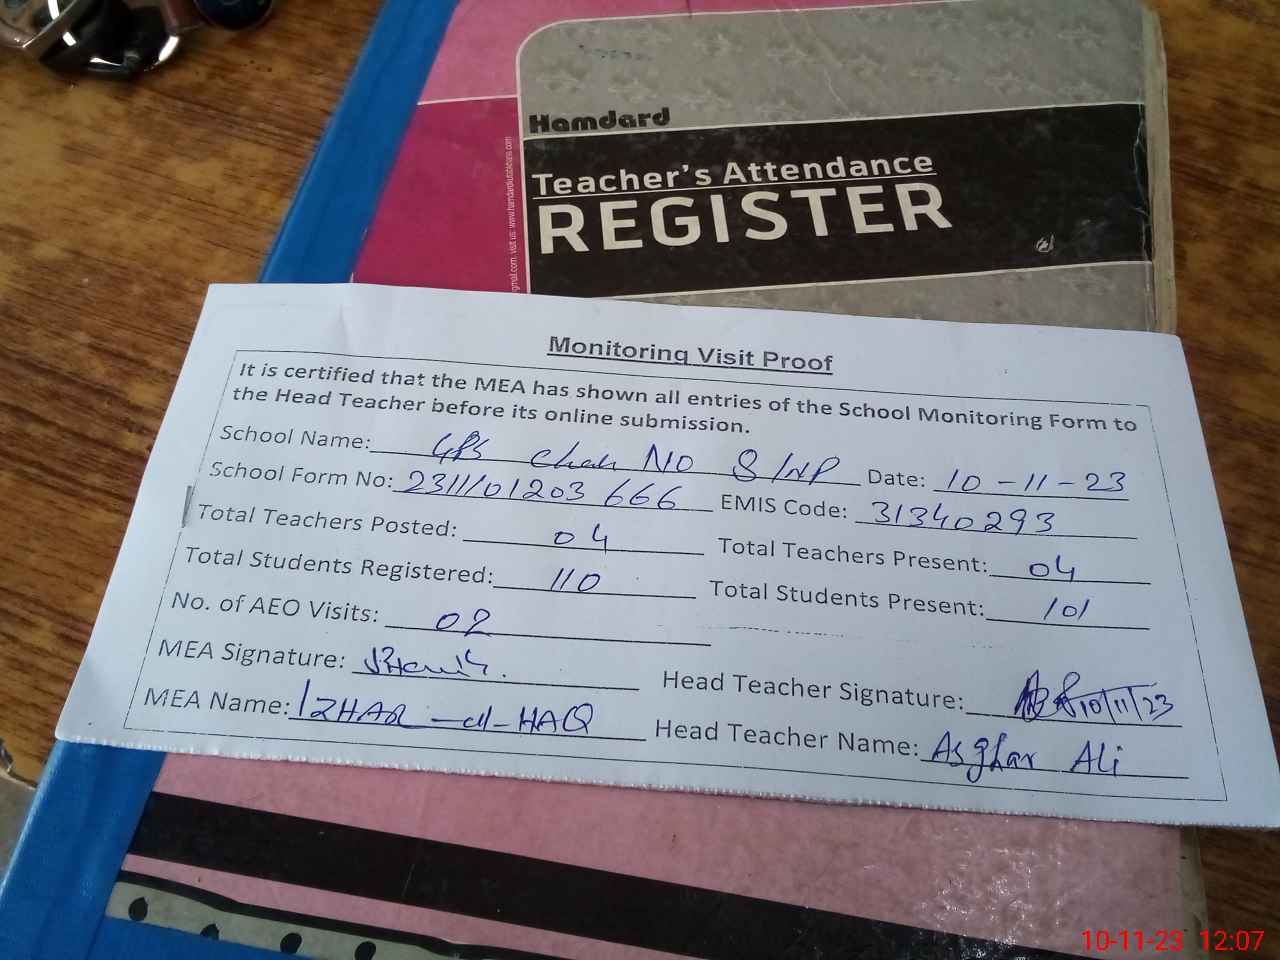 Hamdard
Teacher's Attendance
REGISTER
gmail.com, visit us: www.hamdardkutabkhana.com
Monitoring Visit Proof
It is certified that the MEA has shown all entries of the School Monitoring Form to
the Head Teacher before its online submission.
School Name: GPS Chak NO 8/NP Date: 10-11-23
School Form No: 2311101203666 EMIS Code: 31340293
Total Teachers Posted: 04 Total Teachers Present: 04
Total Students Registered: 110 Total Students Present: 101
No. of AEO Visits: 02
MEA Signature: Head Teacher Signature: 10/11/23
MEA Name: IZHAR-ul-HAQ Head Teacher Name: Asghar Ali
10-11-23 12:07